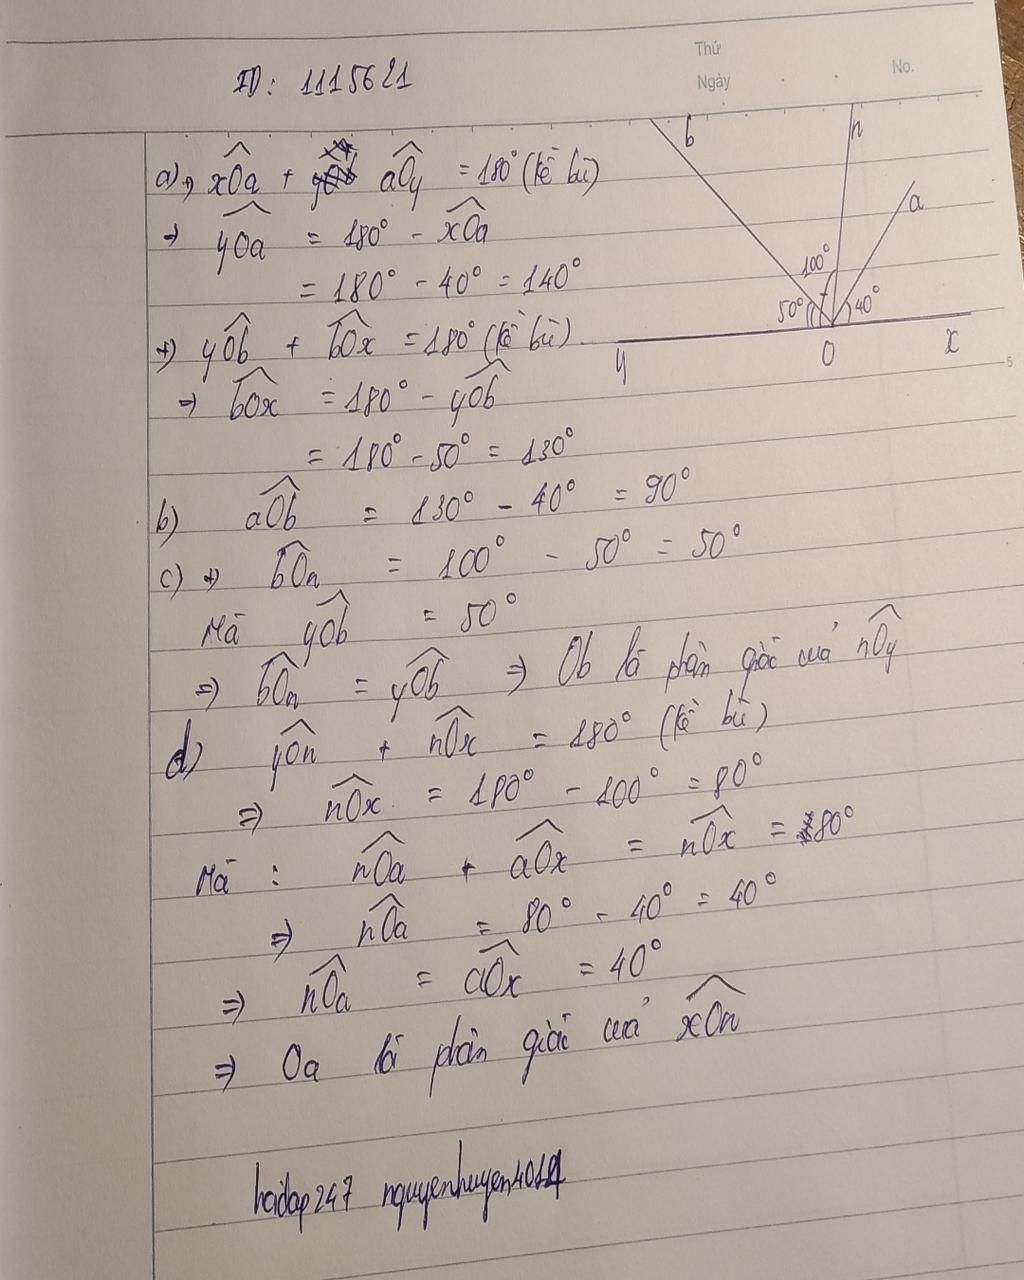 Thứ
Ngày
No.
ID: 1115621
a) +) xOa + aOy = 180° (kề bù)
⇒ yOa = 180° - xOa
= 180° - 40° = 140°
+) yOb + bOx = 180° (kề bù)
⇒ bOx = 180° - yOb
= 180° - 50° = 130°
b) aOb = 130° - 40° = 90°
c) +) bOn = 100° - 50° = 50°
Mà yOb = 50°
⇒ bOn = yOb ⇒ Ob là phân giác của nOy
d) yOn + nOx = 180° (kề bù)
⇒ nOx = 180° - 100° = 80°
Mà : nOa + aOx = nOx = 80°
⇒ nOa = 80° - 40° = 40°
⇒ nOa = aOx = 40°
⇒ Oa là phân giác của xOn
b
n
a
100°
50°
40°
y
O
x
5
hoidap247 nguyenhuyen